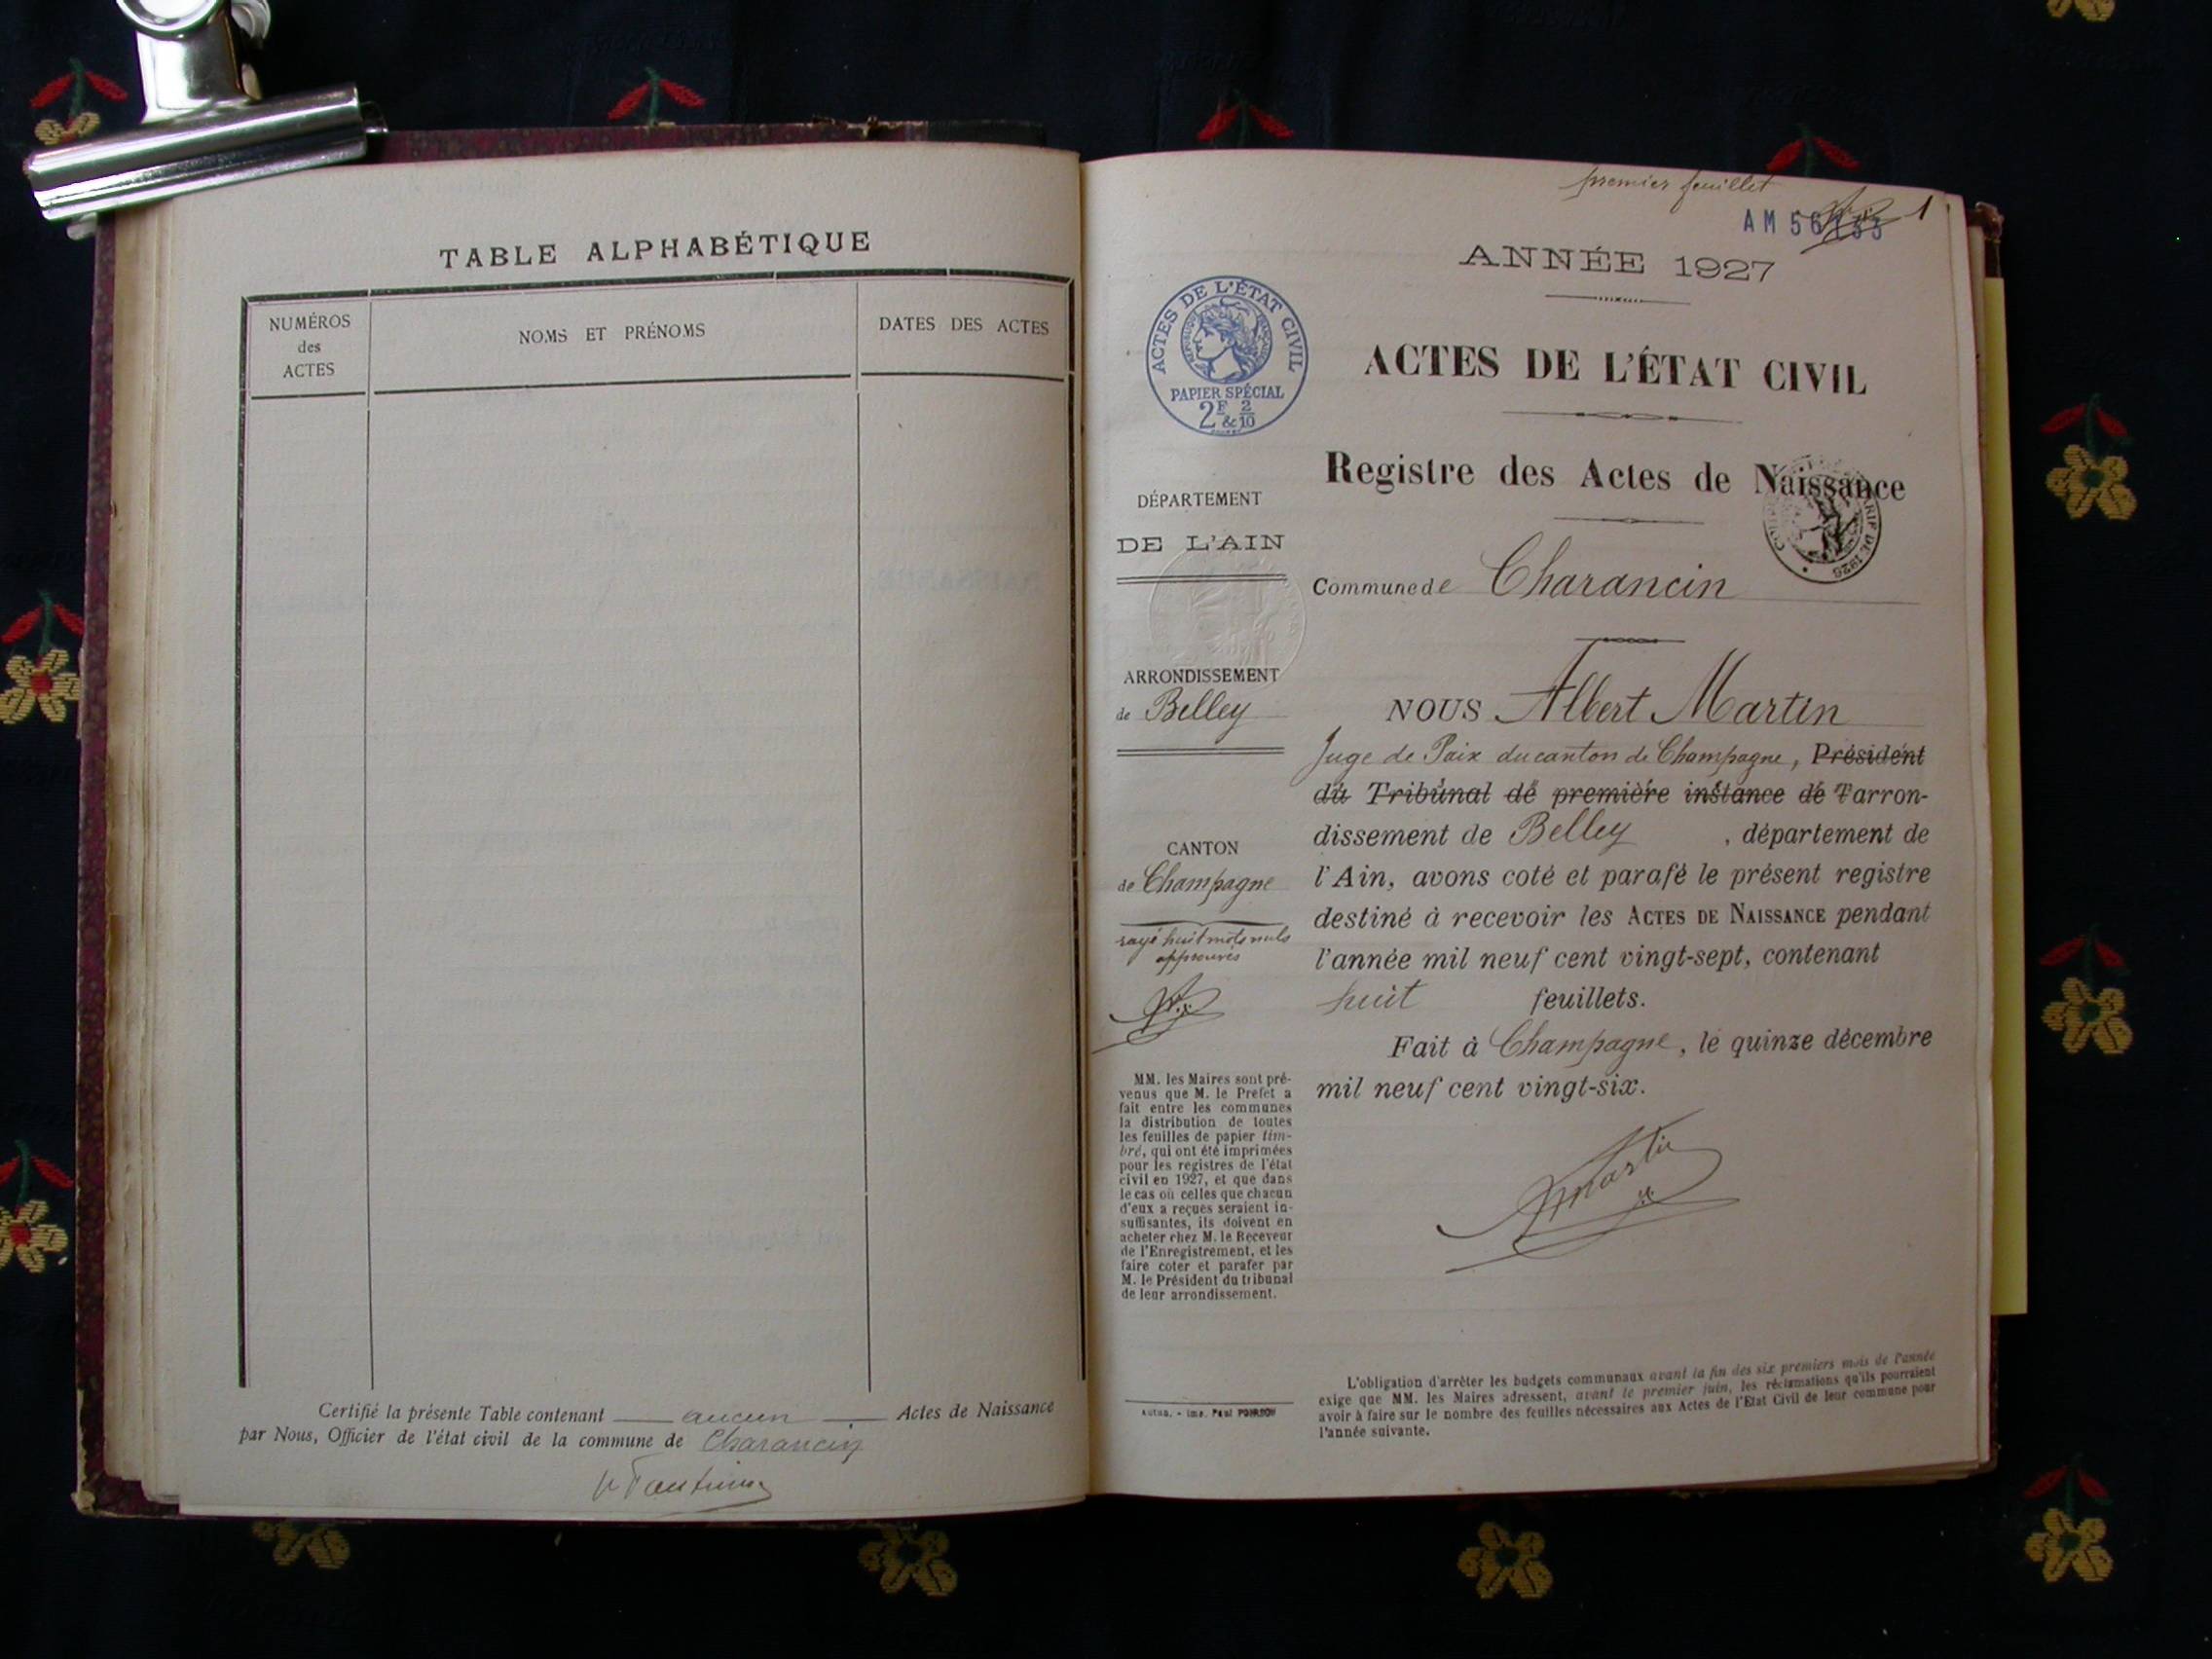 TABLE ALPHABÉTIQUE
NUMÉROS
des
ACTES
NOMS ET PRÉNOMS
DATES DES ACTES
Certifié la présente Table contenant aucun Actes de Naissance
par Nous, Officier de l'état civil de la commune de Charancin
premier feuillet
AM 56133
1
ANNÉE 1927
ACTES DE L'ÉTAT CIVIL
RÉPUBLIQUE FRANÇAISE
PAPIER SPÉCIAL
2F & 2/10
ACTES DE L'ÉTAT CIVIL
Registre des Actes de Naissance
TARIF DE 1925
DÉPARTEMENT
DE L'AIN
Commune de Charancin
ARRONDISSEMENT
de Belley
CANTON
de Champagne
rayé huit mots nuls
approuvés
MM. les Maires sont pré-
venus que M. le Préfet a
fait entre les communes
la distribution de toutes
les feuilles de papier tim-
bré, qui ont été imprimées
pour les registres de l'état
civil en 1927, et que dans
le cas où celles que chacun
d'eux a reçues seraient in-
suffisantes, ils doivent en
acheter chez M. le Receveur
de l'Enregistrement, et les
faire coter et parafer par
M. le Président du tribunal
de leur arrondissement.
NOUS Albert Martin
Juge de Paix du canton de Champagne, Président
du Tribunal de première instance de l'arron-
dissement de Belley, département de
l'Ain, avons coté et parafé le présent registre
destiné à recevoir les ACTES DE NAISSANCE pendant
l'année mil neuf cent vingt-sept, contenant
huit feuillets.
Fait à Champagne, le quinze décembre
mil neuf cent vingt-six.
Martin
L'obligation d'arrêter les budgets communaux avant la fin des six premiers mois de l'année
exige que MM. les Maires adressent, avant le premier juin, les réclamations qu'ils pourraient
avoir à faire sur le nombre des feuilles nécessaires aux Actes de l'Etat Civil de leur commune pour
l'année suivante.